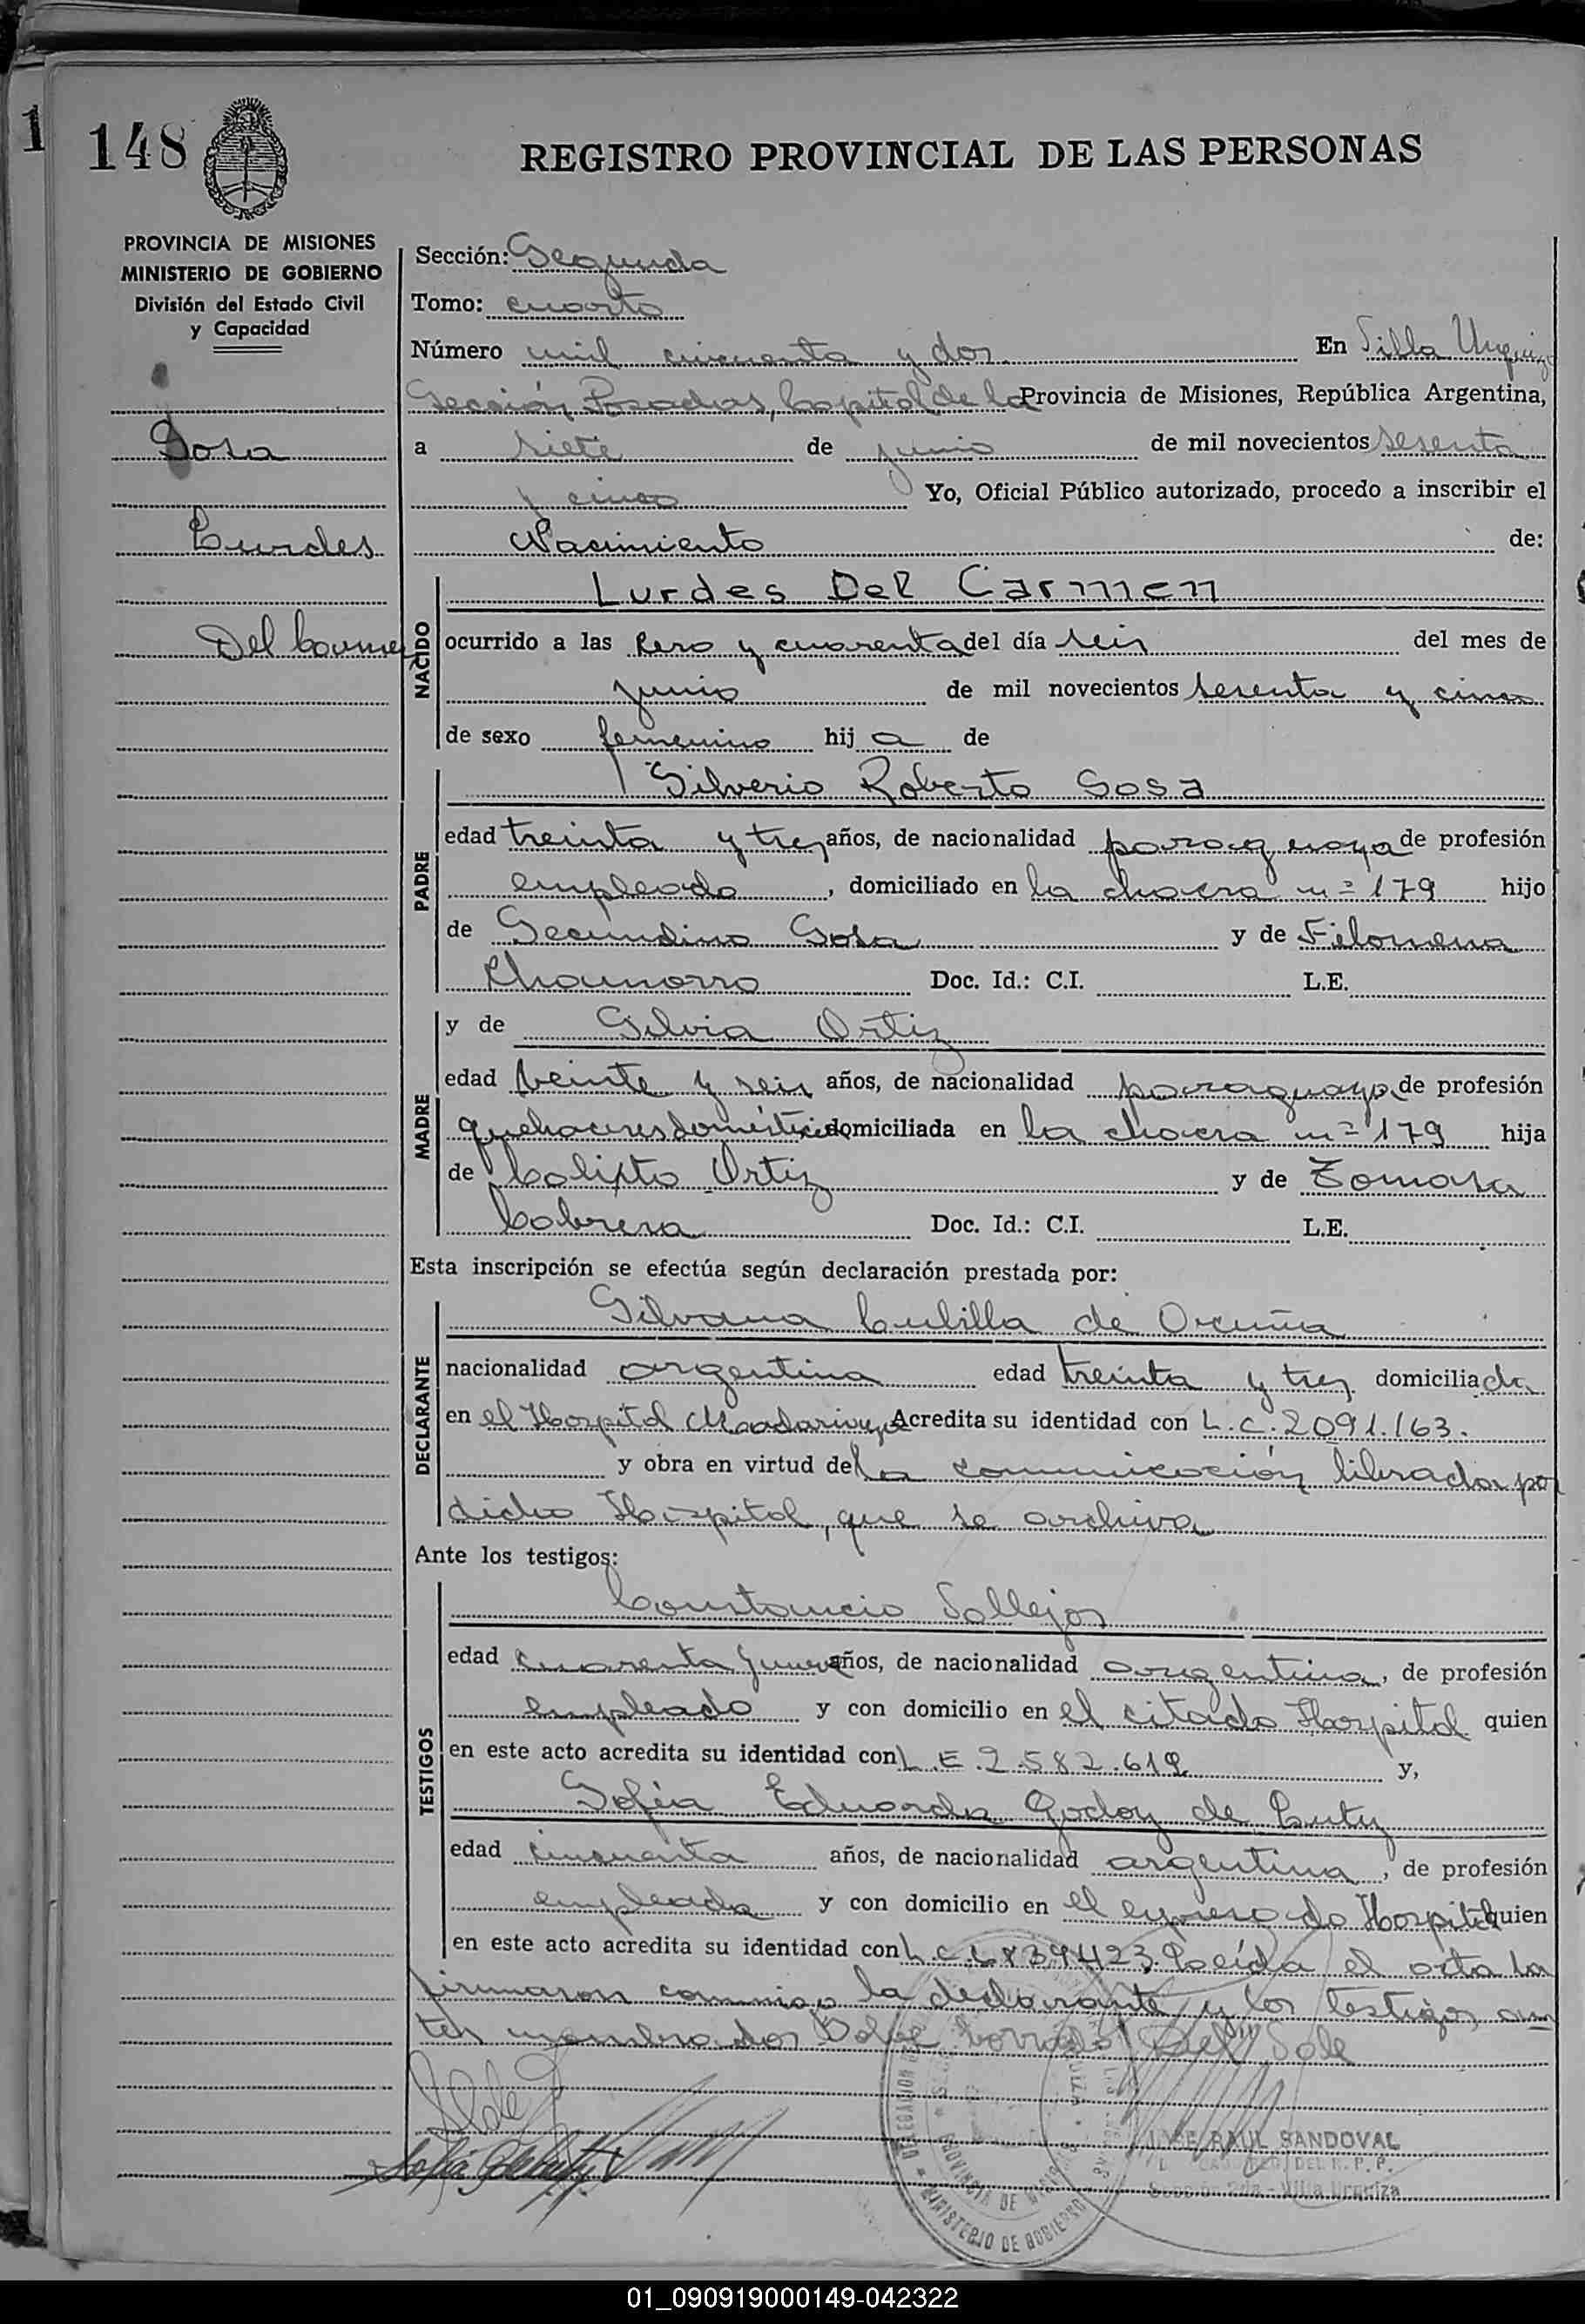 1
148
REGISTRO PROVINCIAL DE LAS PERSONAS
PROVINCIA DE MISIONES
MINISTERIO DE GOBIERNO
División del Estado Civil
y Capacidad
Sosa
Lurdes
Del Carmen
Sección: Segunda
Tomo: cuarto
Número mil cincuenta y dos En Villa Urquiza
Sección Posadas, Capital de la Provincia de Misiones, República Argentina,
a siete de junio de mil novecientos sesenta
y cinco Yo, Oficial Público autorizado, procedo a inscribir el
Nacimiento de:
NACIDO
Lurdes Del Carmen
ocurrido a las cero y cuarenta del día seis del mes de
junio de mil novecientos sesenta y cinco
de sexo femenino hija de
PADRE
Silverio Roberto Sosa
edad treinta y tres años, de nacionalidad paraguaya de profesión
empleado, domiciliado en la chacra nº 179 hijo
de Secundino Sosa y de Filomena
Chamorro Doc. Id.: C.I. L.E.
MADRE
y de Silvia Ortiz
edad veinte y seis años, de nacionalidad paraguaya de profesión
quehaceres domésticos domiciliada en la chacra nº 179 hija
de Calixto Ortiz y de Tomasa
Cabrera Doc. Id.: C.I. L.E.
Esta inscripción se efectúa según declaración prestada por:
DECLARANTE
Silvana Cubilla de Ocuña
nacionalidad argentina edad treinta y tres domiciliada
en el Hospital Madariaga Acredita su identidad con L.C. 2091.163.
y obra en virtud de la comunicación librada por
dicho Hospital, que se archiva
Ante los testigos:
TESTIGOS
Constancio Vallejos
edad cuarenta y nueve años, de nacionalidad argentina, de profesión
empleado y con domicilio en el citado Hospital quien
en este acto acredita su identidad con L.E. 2.582.619 y,
Sofía Eduarda Godoy de
edad cincuenta años, de nacionalidad argentina, de profesión
empleada y con domicilio en el expresado Hospital quien
en este acto acredita su identidad con L.C. Leída el acta la
firmaron conmigo la declarante y los testigos an
tes nombrados Sobre borrado "Del" Vale
DELEGACION
PROVINCIA DE MISIONES
MINISTERIO DE GOBIERNO
JOSE RAUL SANDOVAL
Sección 2da - Villa Urquiza
01_090919000149-042322